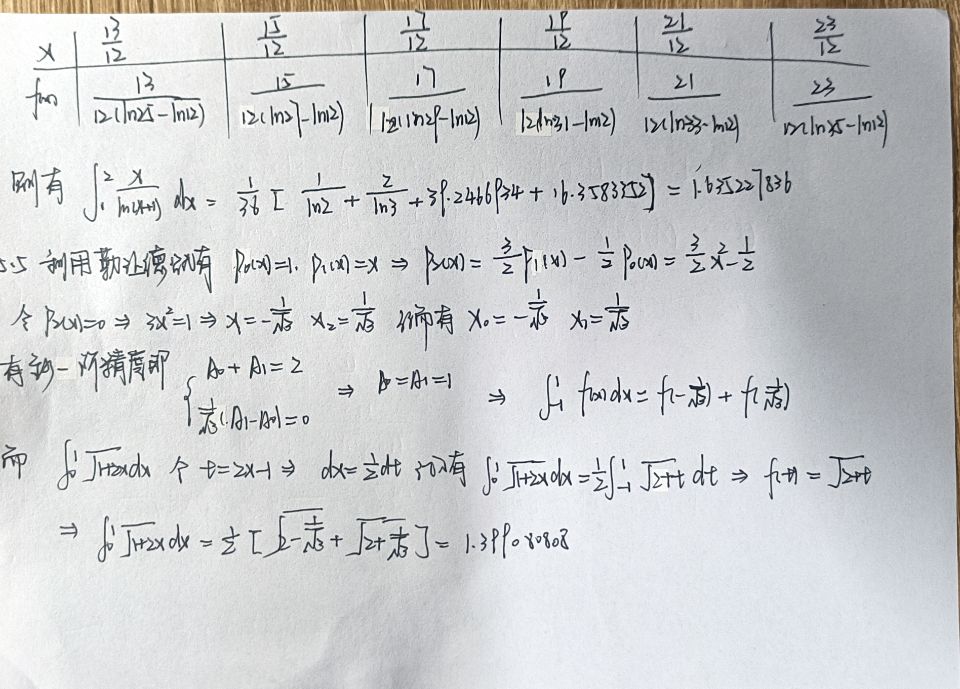 x | 13/12 | 15/12 | 17/12 | 19/12 | 21/12 | 23/12
f(x) | 13/12(ln25-ln12) | 15/12(ln27-ln12) | 17/12(ln29-ln12) | 19/12(ln31-ln12) | 21/12(ln33-ln12) | 23/12(ln35-ln12)
则有 ∫₁² x/ln(x+1) dx = 1/36 [ 1/ln2 + 2/ln3 + 39.2466934 + 16.3583352] = 1.635227836
5.5 利用勒让德 有 P₀(x)=1. P₁(x)=x ⇒ P₂(x) = 3/2 P₁(x) - 1/2 P₀(x) = 3/2 x² - 1/2
令 P₂(x)=0 ⇒ 3x²=1 ⇒ x=-1/√3 x₂=1/√3 从而有 x₀=-1/√3 x₁=1/√3
有 一阶精度即 { A₀+A₁=2 1/√3(A₁-A₀)=0 ⇒ A₀=A₁=1 ⇒ ∫₋₁¹ f(x)dx = f(-1/√3) + f(1/√3)
而 ∫₀¹ √1+2x dx 令 t=2x-1 ⇒ dx=1/2 dt 有 ∫₀¹ √1+2x dx = 1/2 ∫₋₁¹ √2+t dt ⇒ f(t) = √2+t
⇒ ∫₀¹ √1+2x dx = 1/2 [ √2-1/√3 + √2+1/√3 ] = 1.399080808